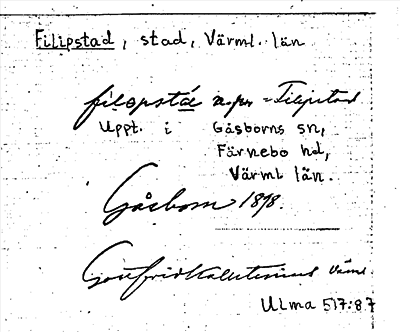 Filipstad, stad, Värml. län
filopstá = Filipstad
Uppt. i Gåsborns sn,
Färnebo hd,
Värml län.
Gåsborn 1898.
Värml.
ULMA 517:87